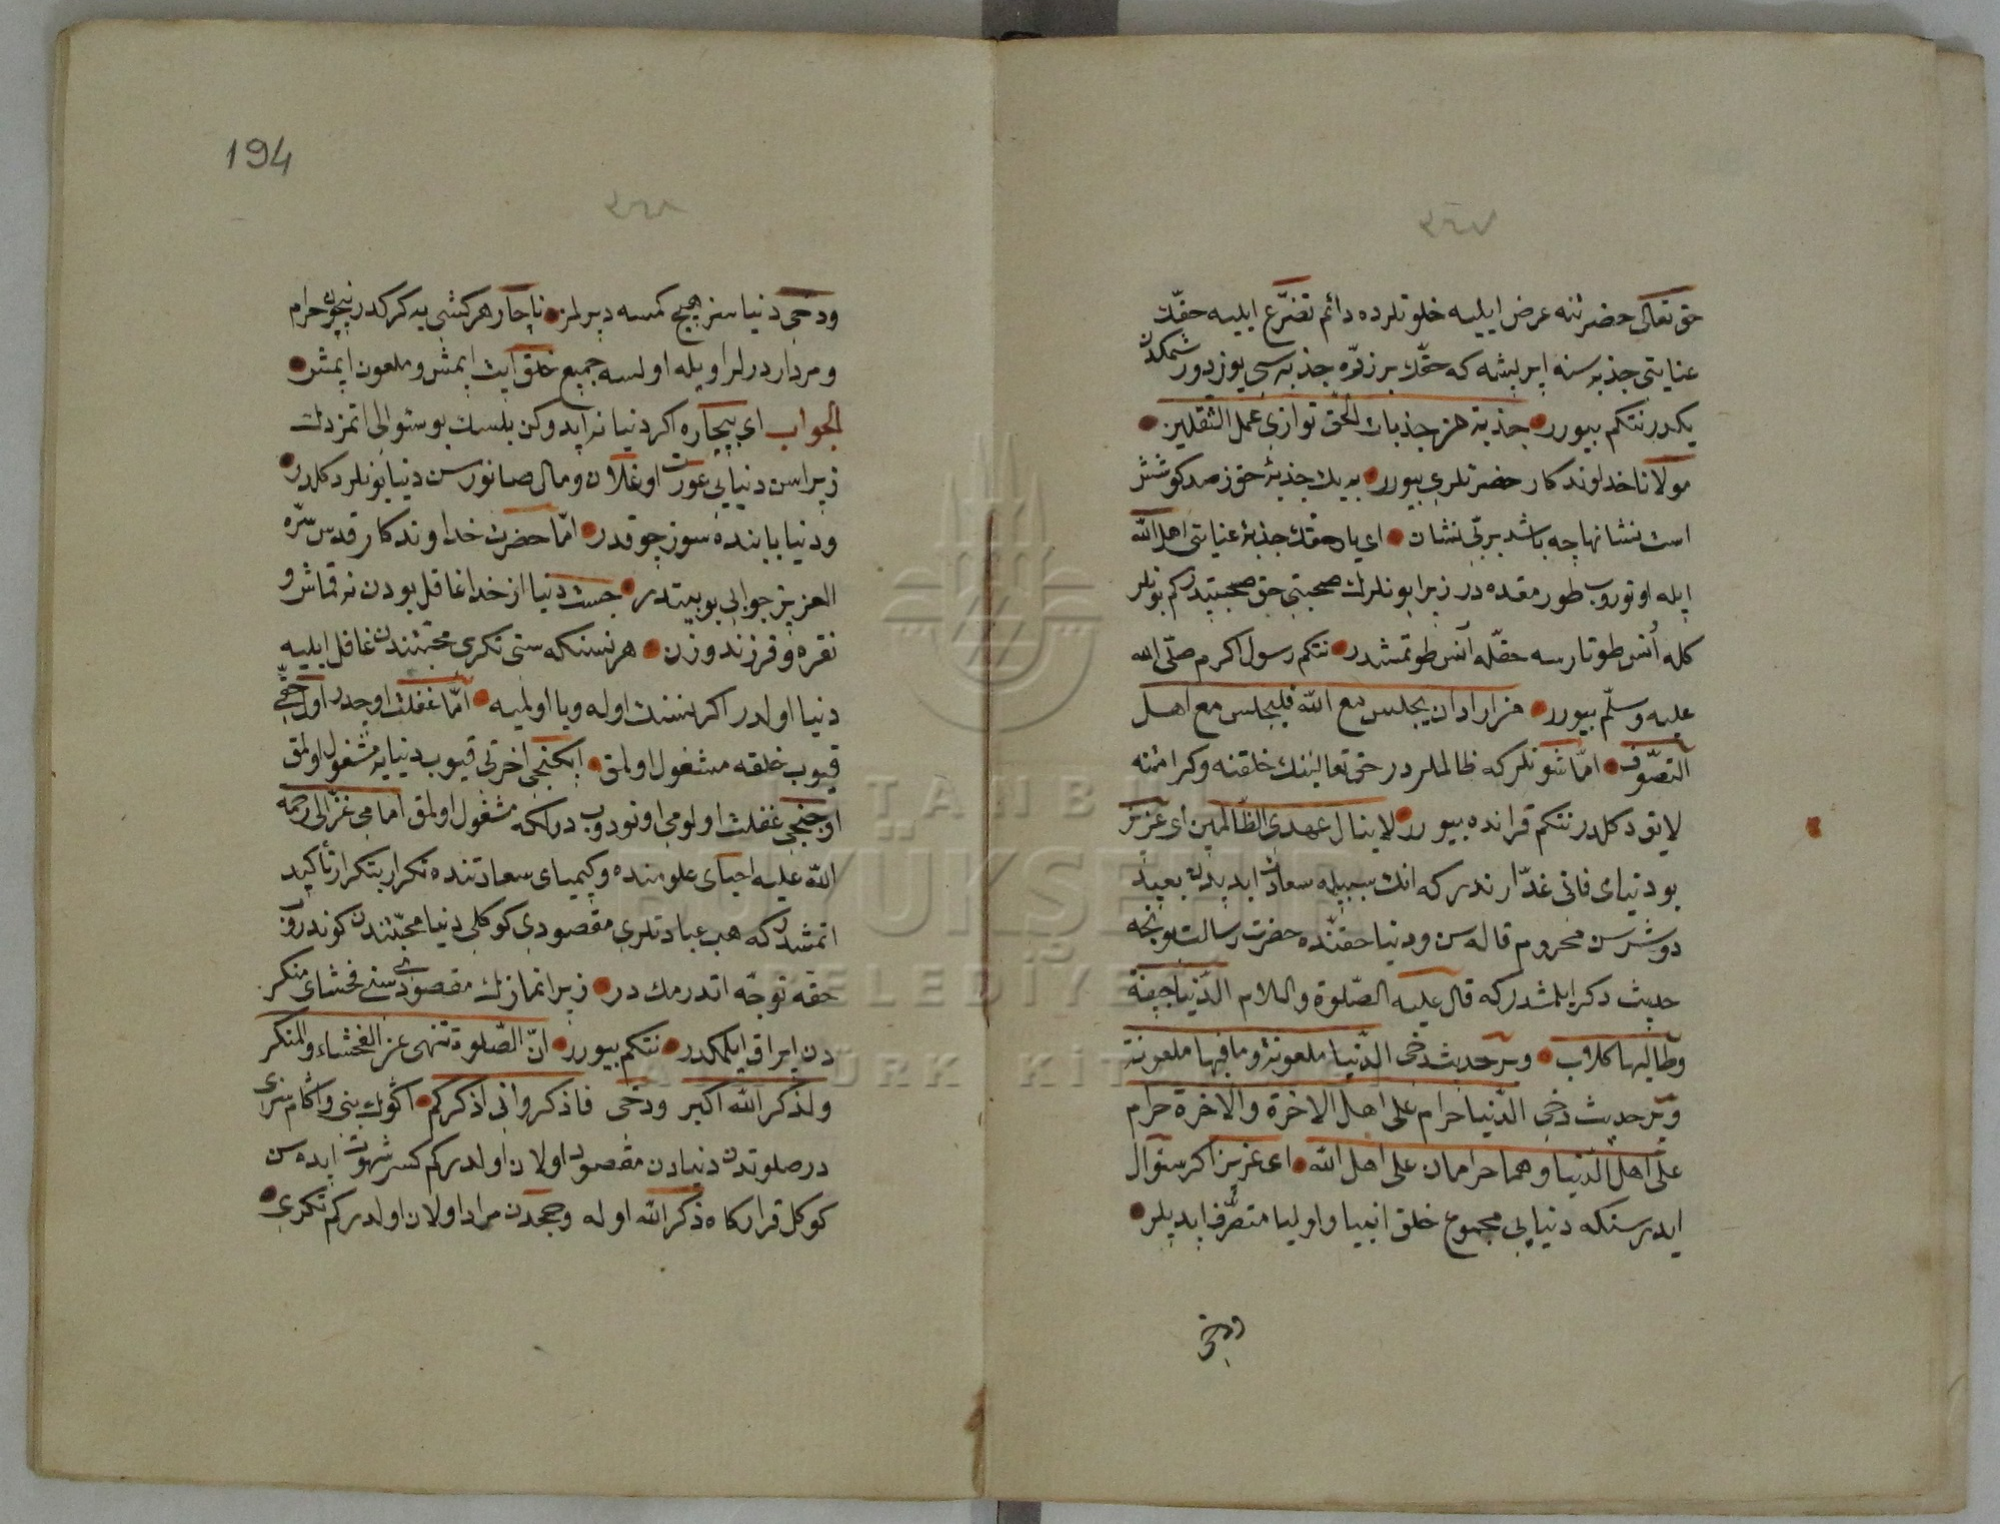 ٣٦٧
حق تعالی حضرتنه عرض ایلیه خلوتلرده دائم تضرّع ایلیه حقّك
عنایتی جذبه سنه ایریشه که حقّك بر ذرّه جذبه سی یوز
یکدر نتکم بیورر جذبة من جذبات الحق توازی عمل الثقلین
مولانا خداوندکار حضرتلری بیورر به یك جذبۀ حق ز صد کوشش
است نشانها چه باشد بر بی نشان ای یار حقّك جذبۀ عنایتی اهل الله
ایله اوتوروب طورمقده در زیرا بونلرك صحبتی حق صحبتیدر کم بونلر
کله اُنس طوتارسه حقّله اُنس طوتمشدر نتکم رسول اکرم صلّی الله
علیه وسلّم بیورر من اراد ان یجلس مع الله فلیجلس مع اهل
التصوّف امّا شونلر که ظالملردر حق تعالینك خلقنه وکرامتنه
لایق دکلدر نتکم قرانده بیورر لا ینال عهدی الظالمین ای عزیز
بو دنیای فانی غدّارندر که انك سببیله سعادت ابدیدن بعید
دوشرسن محروم قاله سن و دنیا حقنده حضرت رسالت بونجه
حدیث ذکر ایلمشدر که قال علیه الصّلوة والسلام الدّنیا جیفة
وطالبها کلاب وبر حدیث دخی الدّنیا ملعونة وما فیها ملعونة
وبر حدیث دخی الدّنیا حرام علی اهل الاخرة والاخرة حرام
علی اهل الدّنیا وهما حرامان علی اهل الله ای عزیز اکر سؤال
ایدرسنکه دنیایی مجموع خلق انبیا واولیا متصرّف ایدیلر
ودخی
194
٣٦٨
ودخی دنیاسز هیچ کمسه دیرلمز ناچار هرکشی یه کرکدر نیچون حرام
ومرداردرلر اویله اولسه جمیع خلق ایت ایمش وملعون ایمش
الجواب ای بیچاره اکر دنیا نه ایدوکن بلسك بو سئوالی اتمزدك
زیرا سن دنیایی عورت اوغلان ومال صانورسن دنیا بونلر دکلدر
ودنیا بابنده سوز چوقدر امّا حضرت خداوندکار قدس سرّه
العزیز جوابی بو بیتدر چیست دنیا از خدا غافل بودن نه قماش و
نقره وفرزند وزن هر نسنکه سنی تکری محبّتندن غافل ایلیه
دنیا اولدر اکر نسنك اوله ویا اولمیه امّا غفلت اوچدر اول حقّی
قیوب خلقه مشغول اولمق ایکنجی اخرتی قیوب دنیایه مشغول اولمق
اوچنجی غفلت اولومی اونودوب درلکه مشغول اولمق امام غزّالی رحمه
الله علیه احیای علومنده وکیمیای سعادتنده تکرار بتکرار تأکید
اتمشدر که هب عبادتلری مقصودی کوکلی دنیا محبّتندن کوندروّ
حقه توجّه اتدرمك در زیرا نمازك مقصودی سنی فحشای منکر
دن ایراق ایلمکدر نتکم بیورر انّ الصّلوة تنهی عن الفحشاء والمنکر
ولذکر الله اکبر ودخی فاذکرونی اذکرکم اکوك بنی
در صلوتدن دنیادن مقصود اولان اولدر کم کسر شهوت ایده سن
کوکل قرارکاه ذکر الله اوله وحجدن مراد اولان اولدر کم تکری